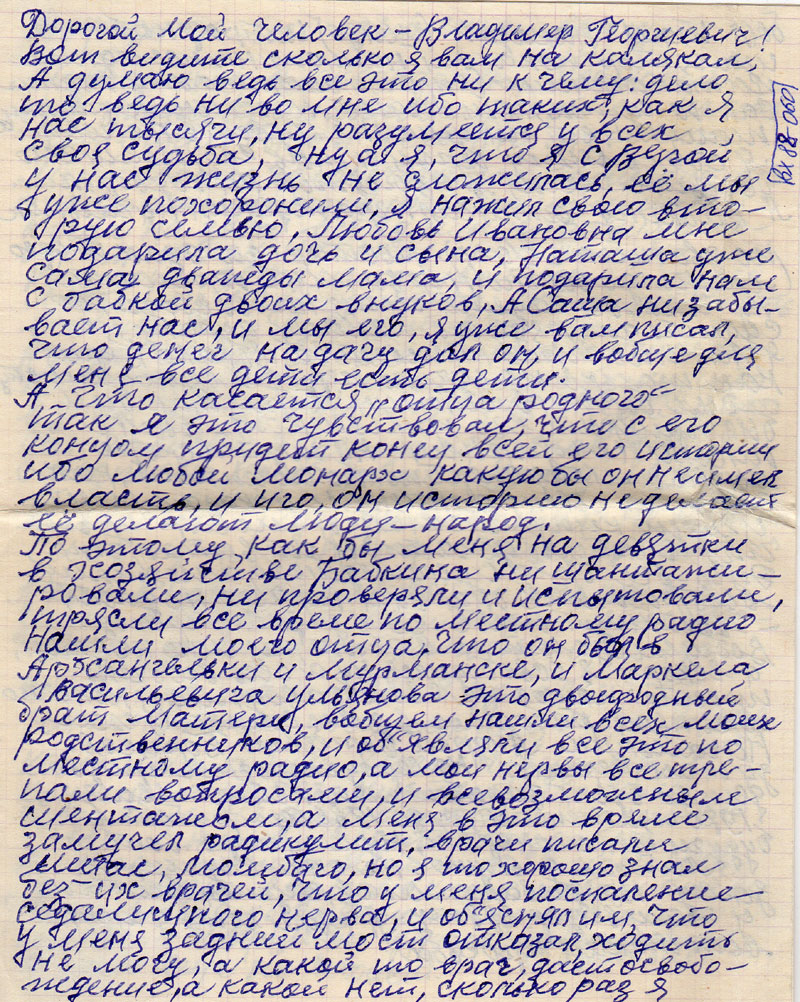 Дорогой мой человек – Владимер Георгиевич!
Вот видите сколько я вам на калякал,
А думаю ведь все это ни к чему: дело
то ведь ни во мне ибо таких, как я
нас тысячи, ну разумется у всех
своя судьба, ну а я, что я с Верой
у нас жизнь не сложилась, её мы
уже похоронили, я нажил свою вто-
рую семью, Любовь Ивановна мне
подарила дочь и сына, Наташа уже
сама дважды мама, и подарила нам
с бабкой двоих внуков, А Саша низабы-
вает нас, и мы его, я уже вам писал,
что денег на дачу дал он, и вобще для
меня все дети есть дети.
А, что касается „отца родного"
так я это чувствовал, что с его
концом придет конец всей его истории
ибо любой монарх какую бы он не имел
власть, и иго, он историю не делает
её делают люди – народ.
По этому, как бы меня на девятки
в хозяйстве Бабкина ни шантажи-
ровали, ни проверяли и испытовали,
трясли все время по местному радио
нашли моего отца, что он был в
Архангельки и Мурманске, и Маркела
Васильевича Ульянова это двоюродный
брат матери, вобщем нашли всех моих
родственников, и об'являли все это по
местному радио, а мои нервы все тре-
пали вопросами, и всевозможным
шентажом, а меня в это время
замучел радикулит, врачи писали
ишиас, люмбаго, но я то хорошо знал
без их врачей, что у меня воспаление
седалищного нерва, и об'яснял им, что
у меня задний мост отказал, ходить
не могу, а какой то врач, даст освобо-
ждение, а какой нет, сколько раз я
Вх 88-060